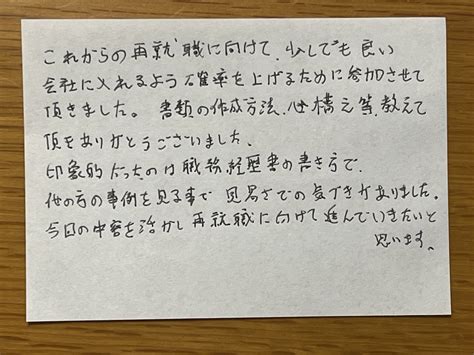 これからの再就職に向けて、少しでも良い
会社に入れるよう確率を上げるために参加させて
頂きました。書類の作成方法、心構え等、教えて
頂きありがとうございました。
印象的だったのは職務経歴書の書き方で、
他の方の事例を見る事で見易さでの気づきがありました。
今日の内容を活かし再就職に向けて進んでいきたいと
思います。